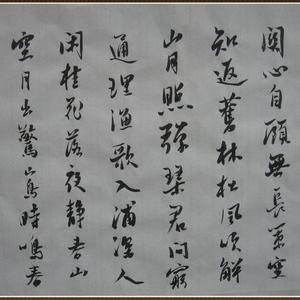 關心自顧無長策空
知返舊林松風吹解
山月照彈琴君問窮
通理漁歌入浦深人
閑桂花落夜静春山
空月出驚山鳥時鳴春